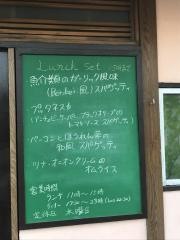 Lunch set
魚介類のガーリック風味
スパゲッティ
プッタネスカ
(アンチョビ・ケーパー・ブラックオリーブの
トマトソース スパゲッティ)
ベーコンとほうれん草の
和風 スパゲッティ
ツナ・オニオンクリームの
オムライス
営業時間
ランチ 11時〜15時
ディナー
定休日 木曜日